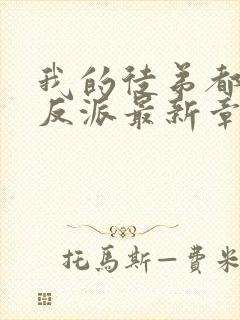 我的徒弟都
反派最新章
托馬斯—費米